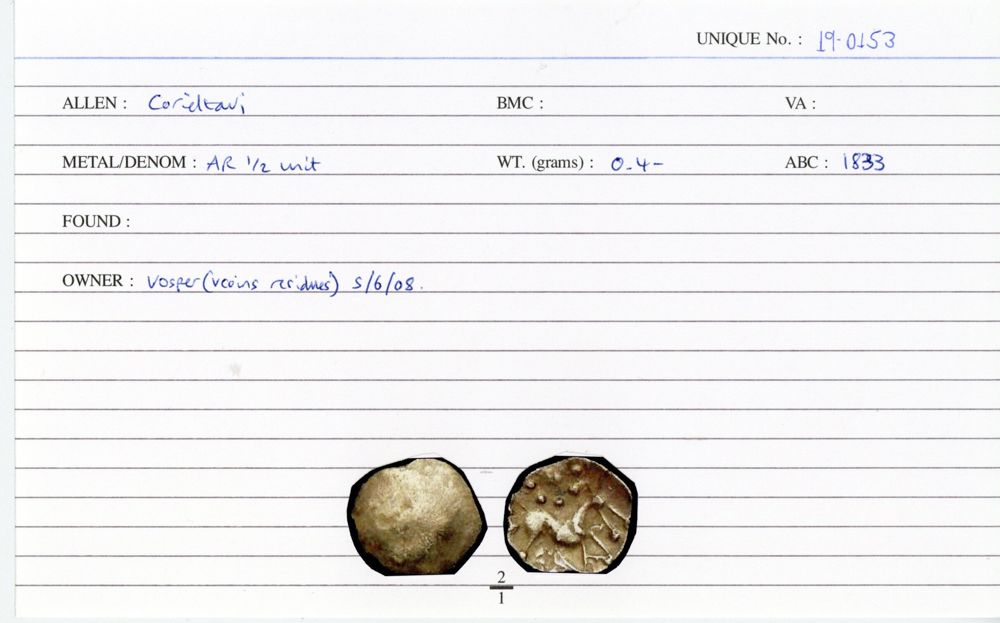 UNIQUE No. : 19-0153
ALLEN : Corieltavi BMC : VA :
METAL/DENOM : AR 1/2 unit WT. (grams) : 0.4- ABC : 1833
FOUND :
OWNER : Vosper (vcoins residues) 5/6/08.
2
1